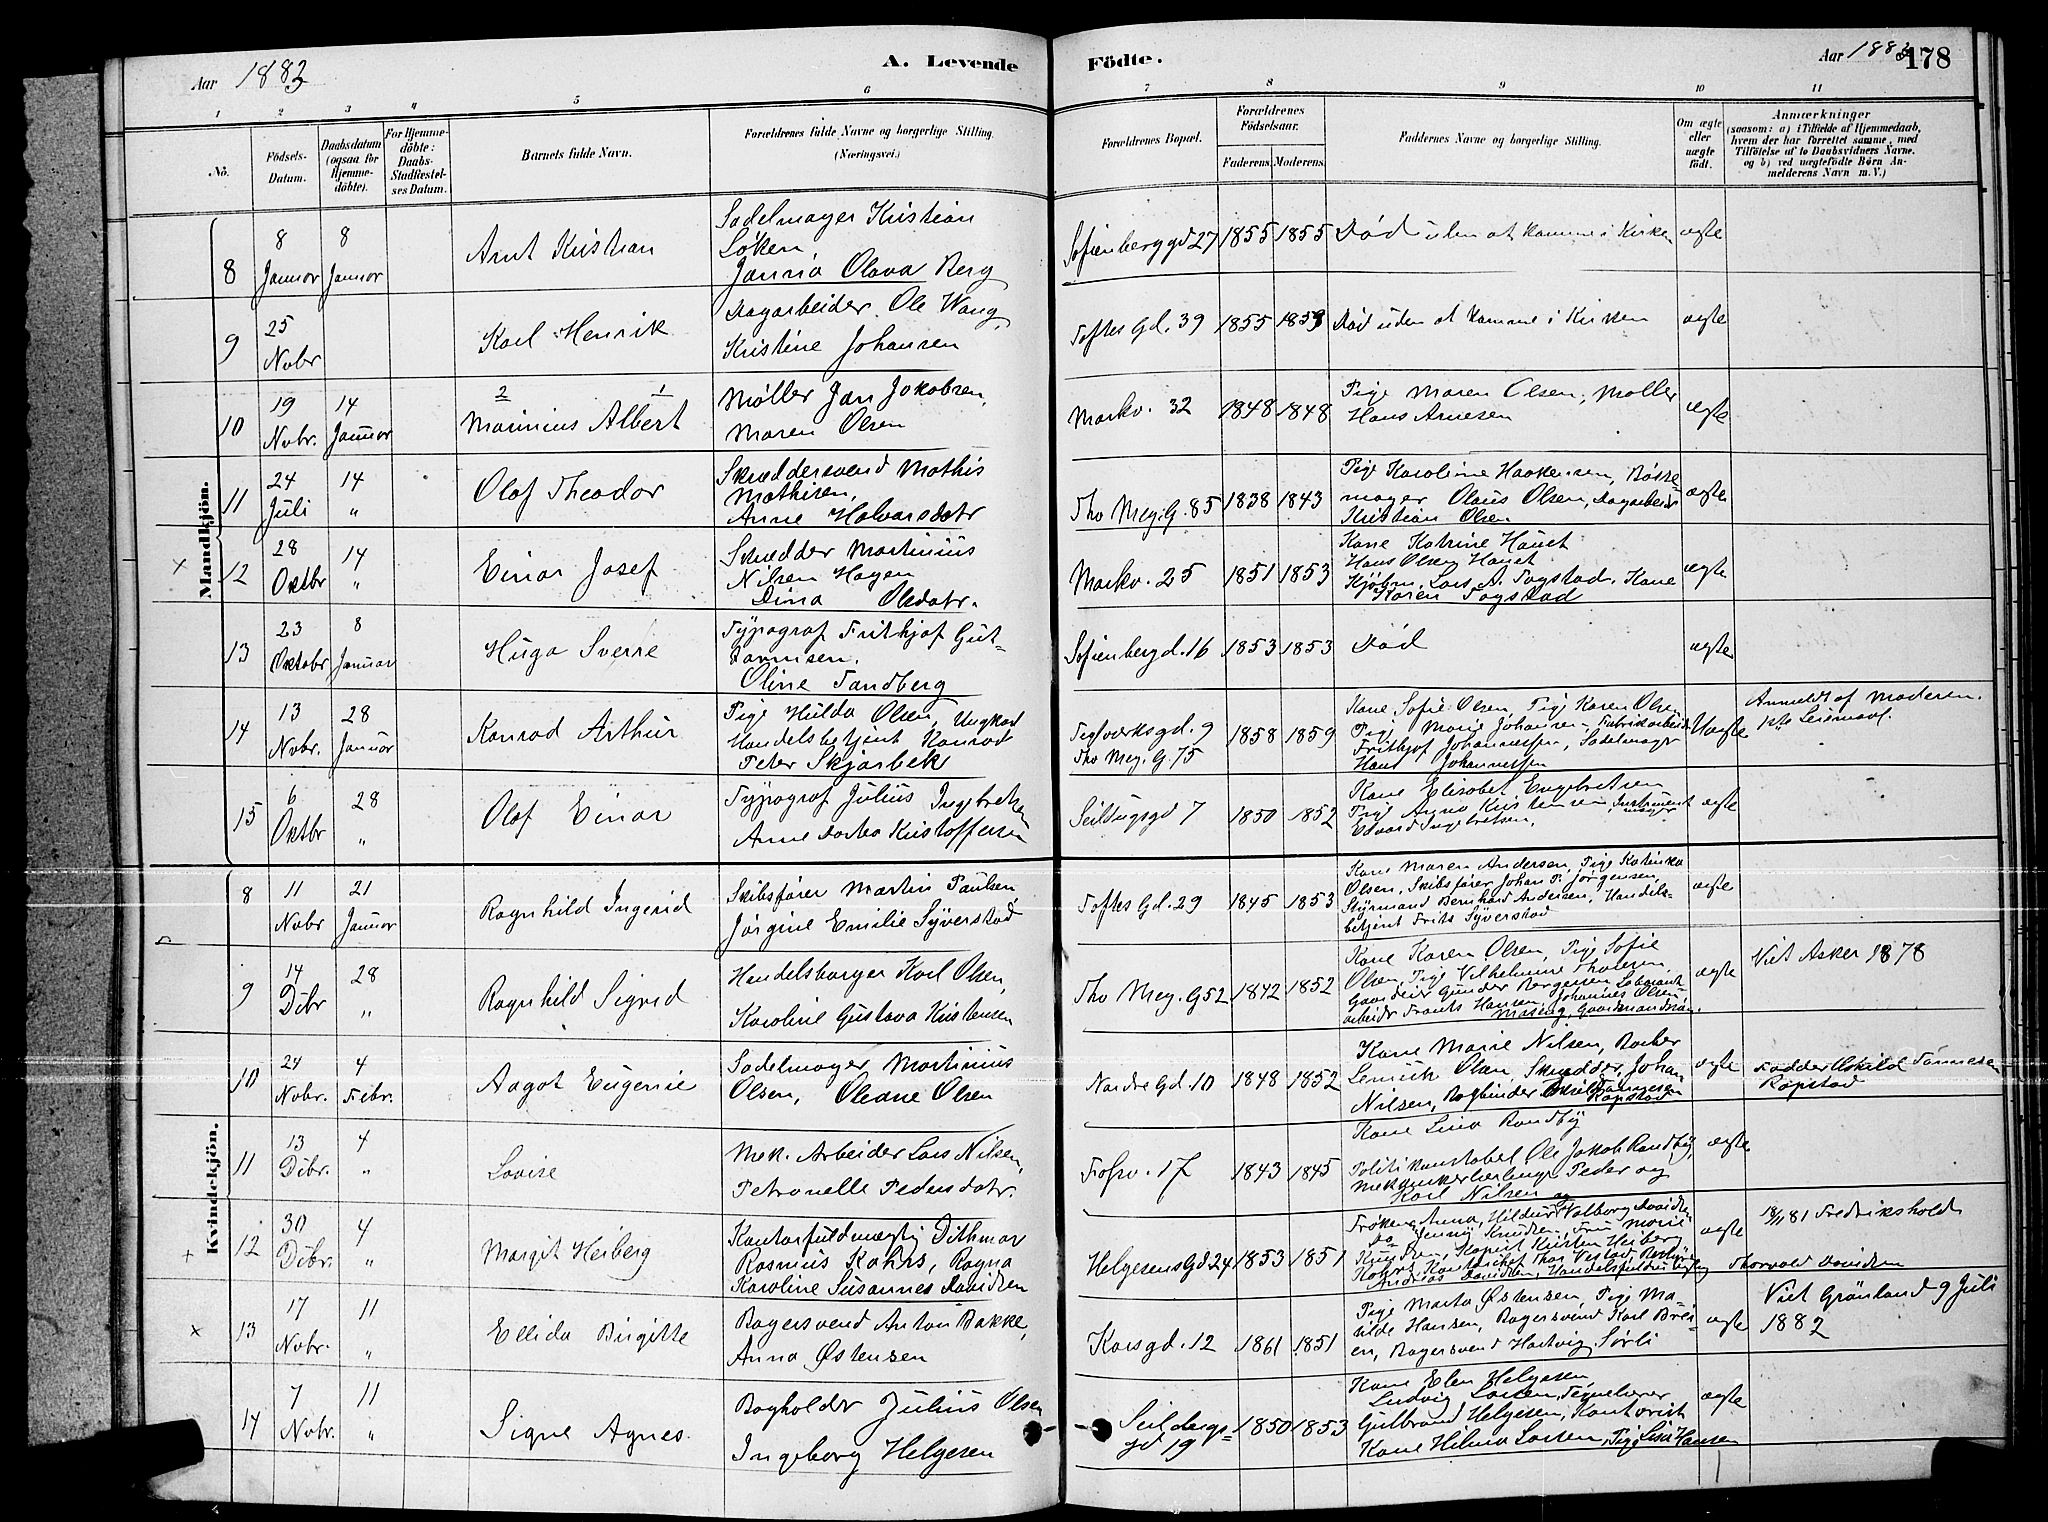 Aar 1883
A. Levende
Födte.
Aar 1883
178
1 2 3 4 5 6 7 8 9 10 11
Nö.
Födsels-Datum.
Daabsdatum (ogsaa for Hjemme-döbte).
For Hjemme-döbte: Daabs-Stadfæstel-ses Datum.
Barnets fulde Navn.
Forældrenes fulde Navne og borgerlige Stilling. (Næringsvei.)
Forældrenes Bopæl.
Forældrenes Födselsaar.
Faderens. Moderens.
Faddernes Navne og borgerlige Stilling.
Om ægte eller uægte födt.
Anmærkninger (saasom: a) i Tilfælde af Hjemmedaab, hvem der har forrettet samme, med Tilföielse af to Daabsvidners Navne, og b) ved uægtefödte Börn An-melderens Navn m. V.)
Mandkjön.
8 8 Januar 8 Januar Arnt Kristian
Sadelmager Kristian
Løken
Janna Olava Berg
Sofienberggd 27 1855 1855 Død uden at komme i Kirken ægte
9 25 Nobr Karl Henrik
Dagarbeider Ole Wang,
Kristine Johansen
Toftes Gd. 39 1855 1859 Død uden at komme i Kirken ægte
10 19 Nobr. 14 Januar 2 1
Marinius Albert
Møller Jan Jakobsen,
Maren Olsen
Markv. 32 1848 1848
Pige Maren Olsen, Møller
Hans Arnesen
ægte
11 24 Juli 14 " Olaf Theodor
Skræddersvend Mathis
Mathisen,
Anne Halvorsdatr
Thv Mey. G. 85 1838 1843
Pige Karoline Haakensen, Børste-
mager Olaus Olsen, Dagarbeider
Kristian Olsen
ægte
× 12 28 Oktbr 14 " Einar Josef
Skrædder Martinius
Nilsen Hagen
Dina Olsdatr.
Markv. 25 1851 1853
Kone Katrine Hauet
Hans Olsen Hauet
Kjøbm. Lars A. Fagstad, Kone
Karen Fagstad
ægte
13 23 Oktobr 8 Januar Hugo Sverre
Typograf Frithjof Gut-
tormsen.
Oline Tandberg
Sofienbergd. 16 1853 1853 Død ægte
14 13 Nobr. 28 Januar Konrad Arthur
Pige Hulda Olsen, Ungkarl
Handelsbetjent Konrad
Peter Skjarbek
Teglverksgd. 9
Thv Mey. G. 75
1858 1859
Kone Sofie Olsen, Pige Karen Olsen
Pige Marie Johansen, Fabrikarbeider
Frithjof Johannessen, Sadelmager
Hans Johannessen
Uægte
Anmeldt af Moderen.
1ste Leiermaal.
15 6 Oktbr 28 " Olaf Einar
Typograf Julius Ingebretsen
Anne Dorthea Kristoffersen
Seildugsgd 7 1850 1852
Kone Elisabet Engebretsen
Pige Agna Kristensen, Instrument
mager
Edvard Ingebretsen,
ægte
Kvindekjön.
8 11 Nobr 21 Januar Ragnhild Ingerid
Skibsfører Martin Paulsen
Jørgine Emilie Syverstad
Toftes Gd. 29 1845 1853
Kone Maren Andersen, Pige Katinka
Olsen, Skibsfører Johan P. Jørgensen,
Styrmand Bernhard Andersen, Handels-
betjent Frits Syverstad
ægte
9 14 Dcbr 28 " Ragnhild Sigrid
Handelsborger Karl Olsen,
Karoline Gustava Kristensen
Thv Mey. G 52 1842 1852
Kone Karen Olsen, Pige Sofie
Olsen, Pige Vilhelmine Thoresen
Gaardeier Gunder Børgesen,
arbeider Frants Hansen, Johannes Olsen
ægte
Viet Asker 1878
10 24 Nobr. 4 Febr. Aagot Eugenie
Sadelmager Martinius
Olsen, Oleane Olsen
Nordre Gd. 10 1848 1852
Kone Marie Nilsen,
Olsen Skrædder, Johan
Nilsen, Bogbinder Eskild Tønnesen
Røpstad
ægte
Fadder Eskild Tønnesen
Røpstad
11 13 Dcbr. 4 " Lovise
Mek. Arbeider Lars Nilsen,
Petronelle Pedersdatr.
Fossv. 17 1843 1845
Kone Lina Randby
Politikonstabel Ole Jakob Randby,
Peder og
Karl Nilsen
ægte
+ 12 30 Dcbr. 4 " Margit Heiberg
Kontorfuldmægtig Dithmar
Rasmus Kahrs, Ragna
Karoline Susannes Davidsen
Helgesens Gd 24 1853 1851
Frøken Anna, Hildur og Valborg Davidsen
Do Jenny Knudsen, Fru Marie
Knudsen, Kristen Heiberg
Kahrs,
Andreas Davidsen, Handelsfuldmægtig
Thorvald Davidsen
ægte
18/11 81 Fredrikshald
× 13 17 Nobr. 11 " Ellida Birgitte
Bagersvend Anton Bakke,
Anna Østensen
Korsgd. 12 1861 1851
Pige Marta Østensen, Pige Ma-
tilde Hansen, Bagersvend Karl
Bagersvend Hartvig Sørli
ægte
Viet Grönland 9 Juli
1882
14 7 Nobr. 11 " Signe Agnes.
Bogholder Julius Olsen
Ingeborg Helgesen
Seildugs-
gd 19
1850 1853
Kone Elen Helgesen
Ludvig Larsen, Tegnelærer
Gulbrand Helgesen, Kontorist
Kone Hilma Larsen, Pige Lisa Hansen
ægte